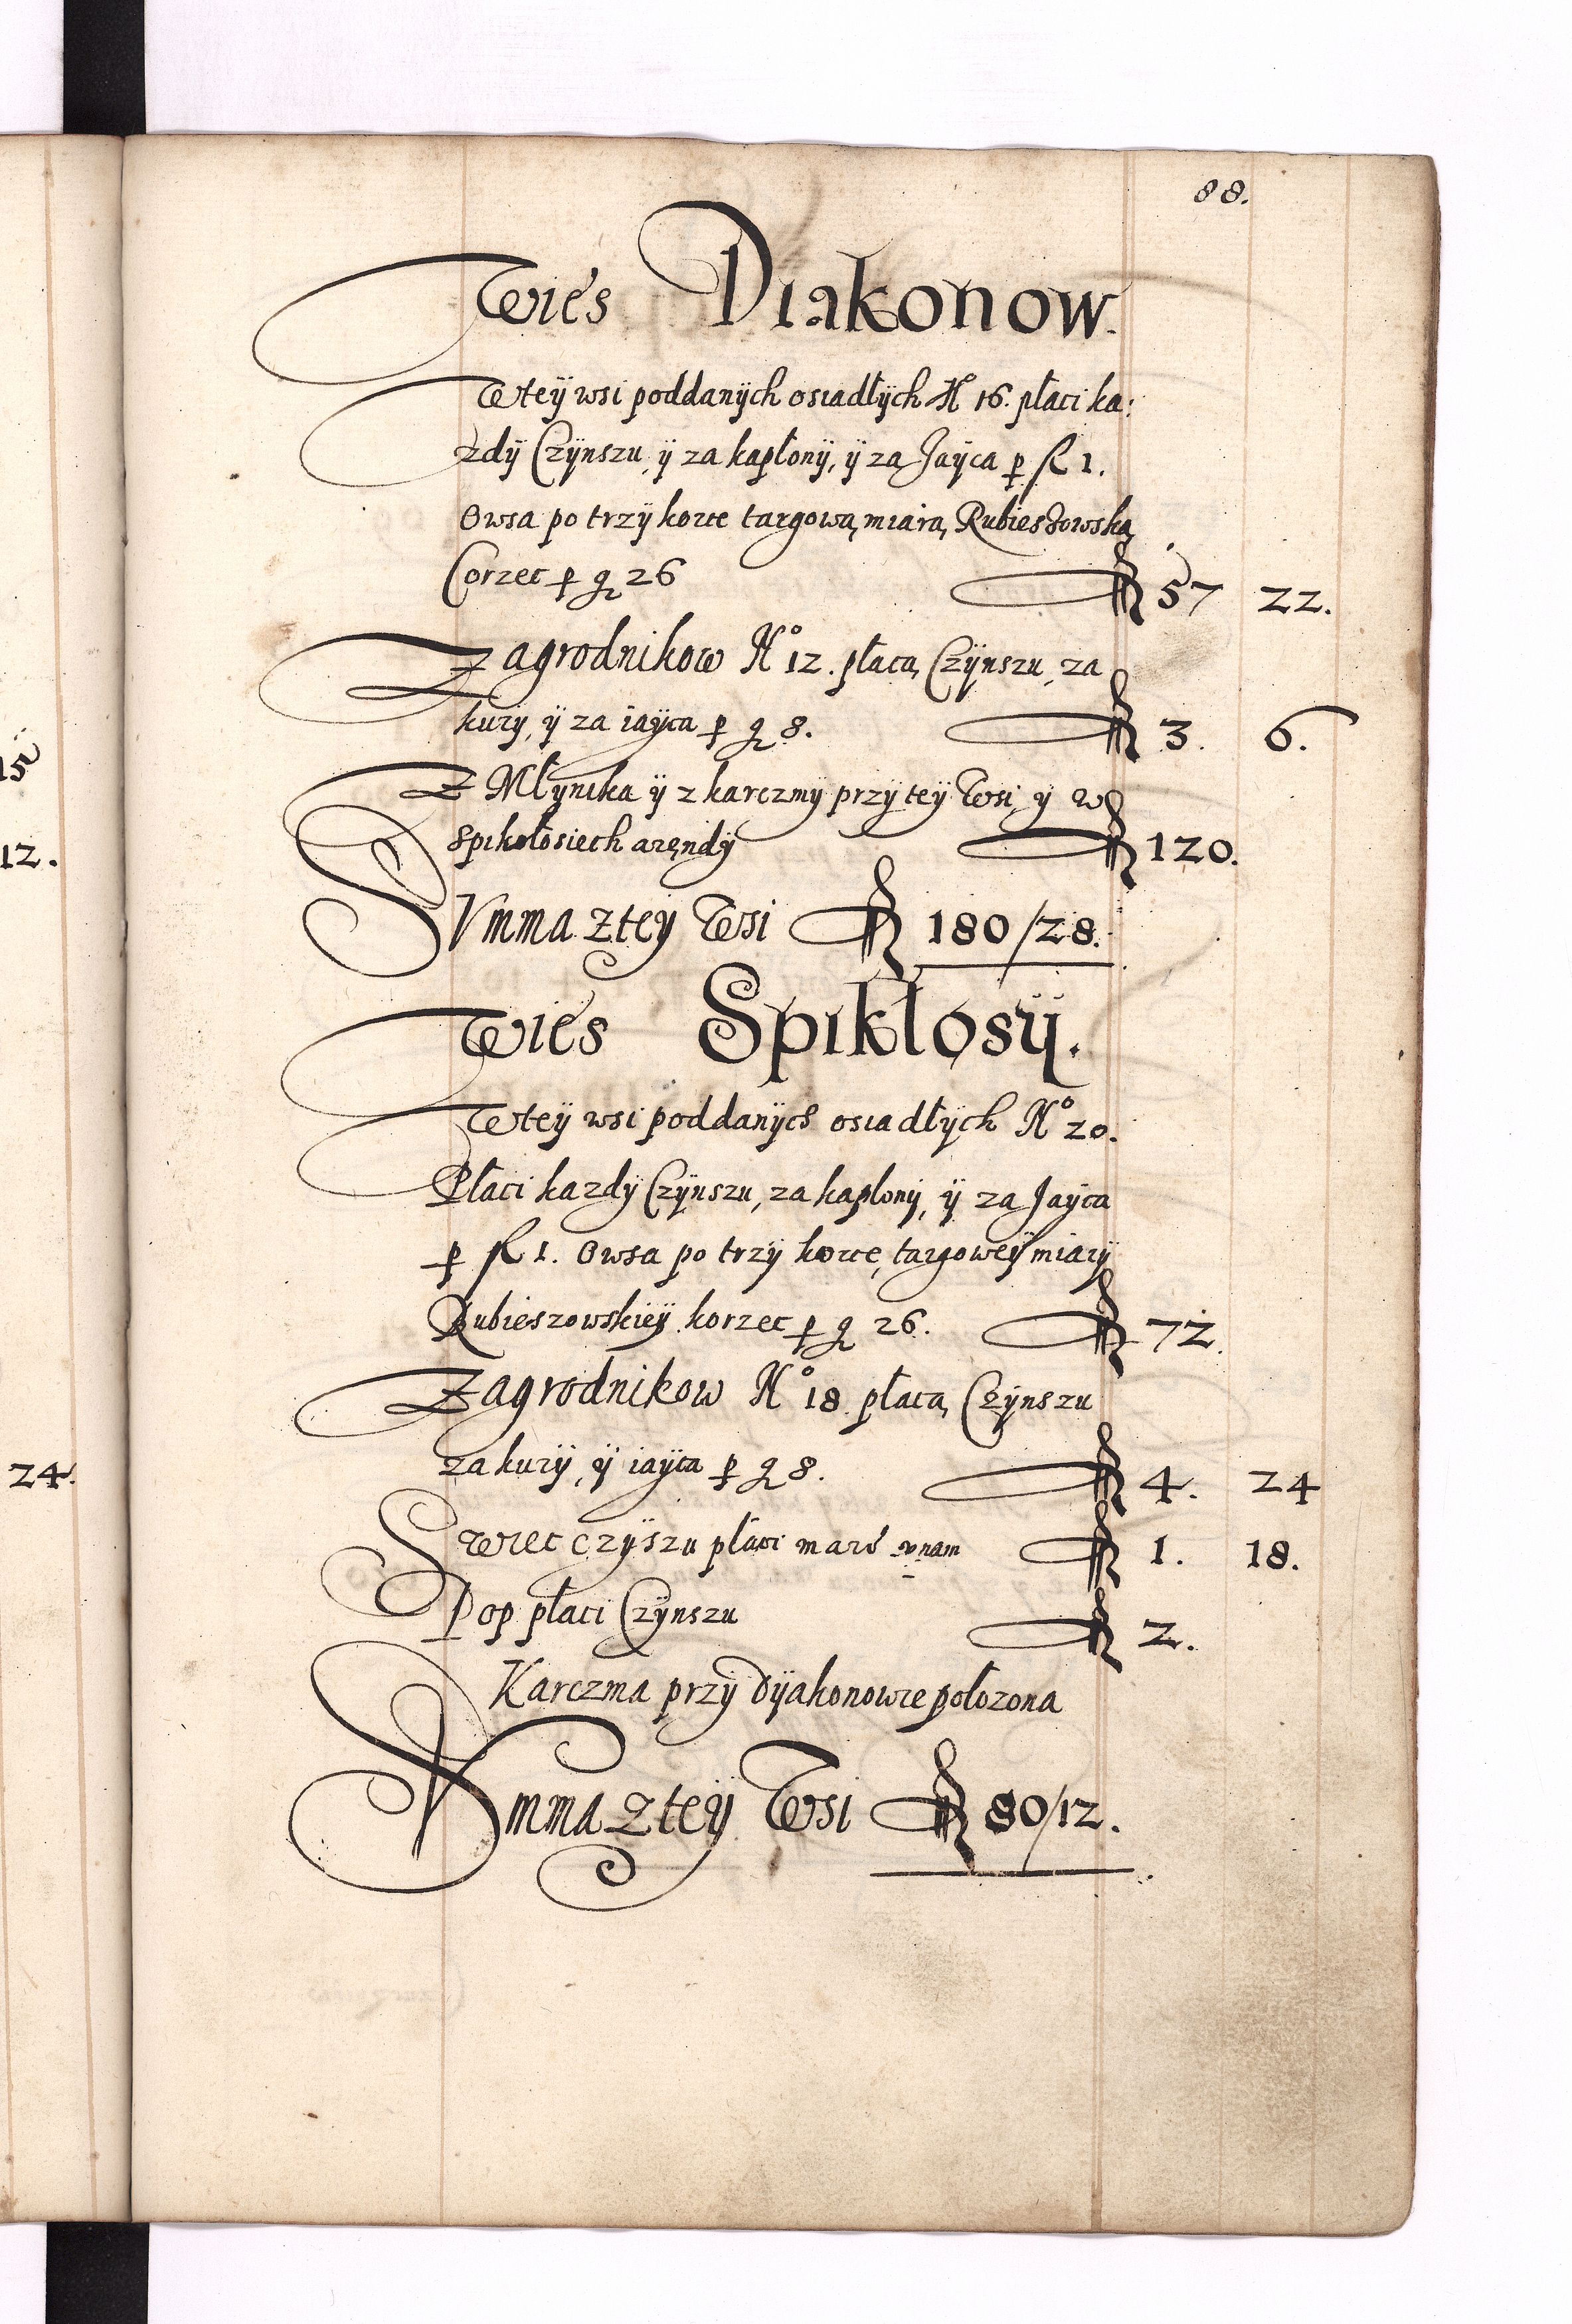 88.
Wies Diakonow.
Wteÿ wsi poddanÿch osiadłÿch N 16. płaci ka:
zdÿ Czÿnszu, ÿ za kapłonÿ, ÿ za Jaÿca p fl 1.
Owsa po trzÿ korce targową miarą Rubieszowską
Corzec p g 26 57 22.
Zagrodnikow No 12. płacą Czÿnszu, za
kurÿ, ÿ za iaÿca p g 8. 3. 6.
Z Młynika ÿ z karczmÿ przÿ teÿ Wsi ÿ w
Spikołosiech arędÿ 120.
SVmma z teÿ Wsi 180/28.
Wies Spikłosÿ.
Wteÿ wsi poddanÿch osiadłÿch No 20.
Płaci kazdÿ Czÿnszu, za kapłonÿ, ÿ za Jaÿca
p fl 1. Owsa po trzÿ korce, targoweÿ miarÿ
Rubieszowskieÿ korzec p g 26. 72.
Zagrodnikow No 18. płacą Czÿnszu
za kurÿ, ÿ iaÿca p g 8. 4. 24
Swiec czÿszu płaci marc vnam 1. 18.
Pop płaci Czÿnszu 2.
Karczma przÿ Dÿakonowie połozona
SVmma z teÿ Wsi 80/12.
15
12.
24.